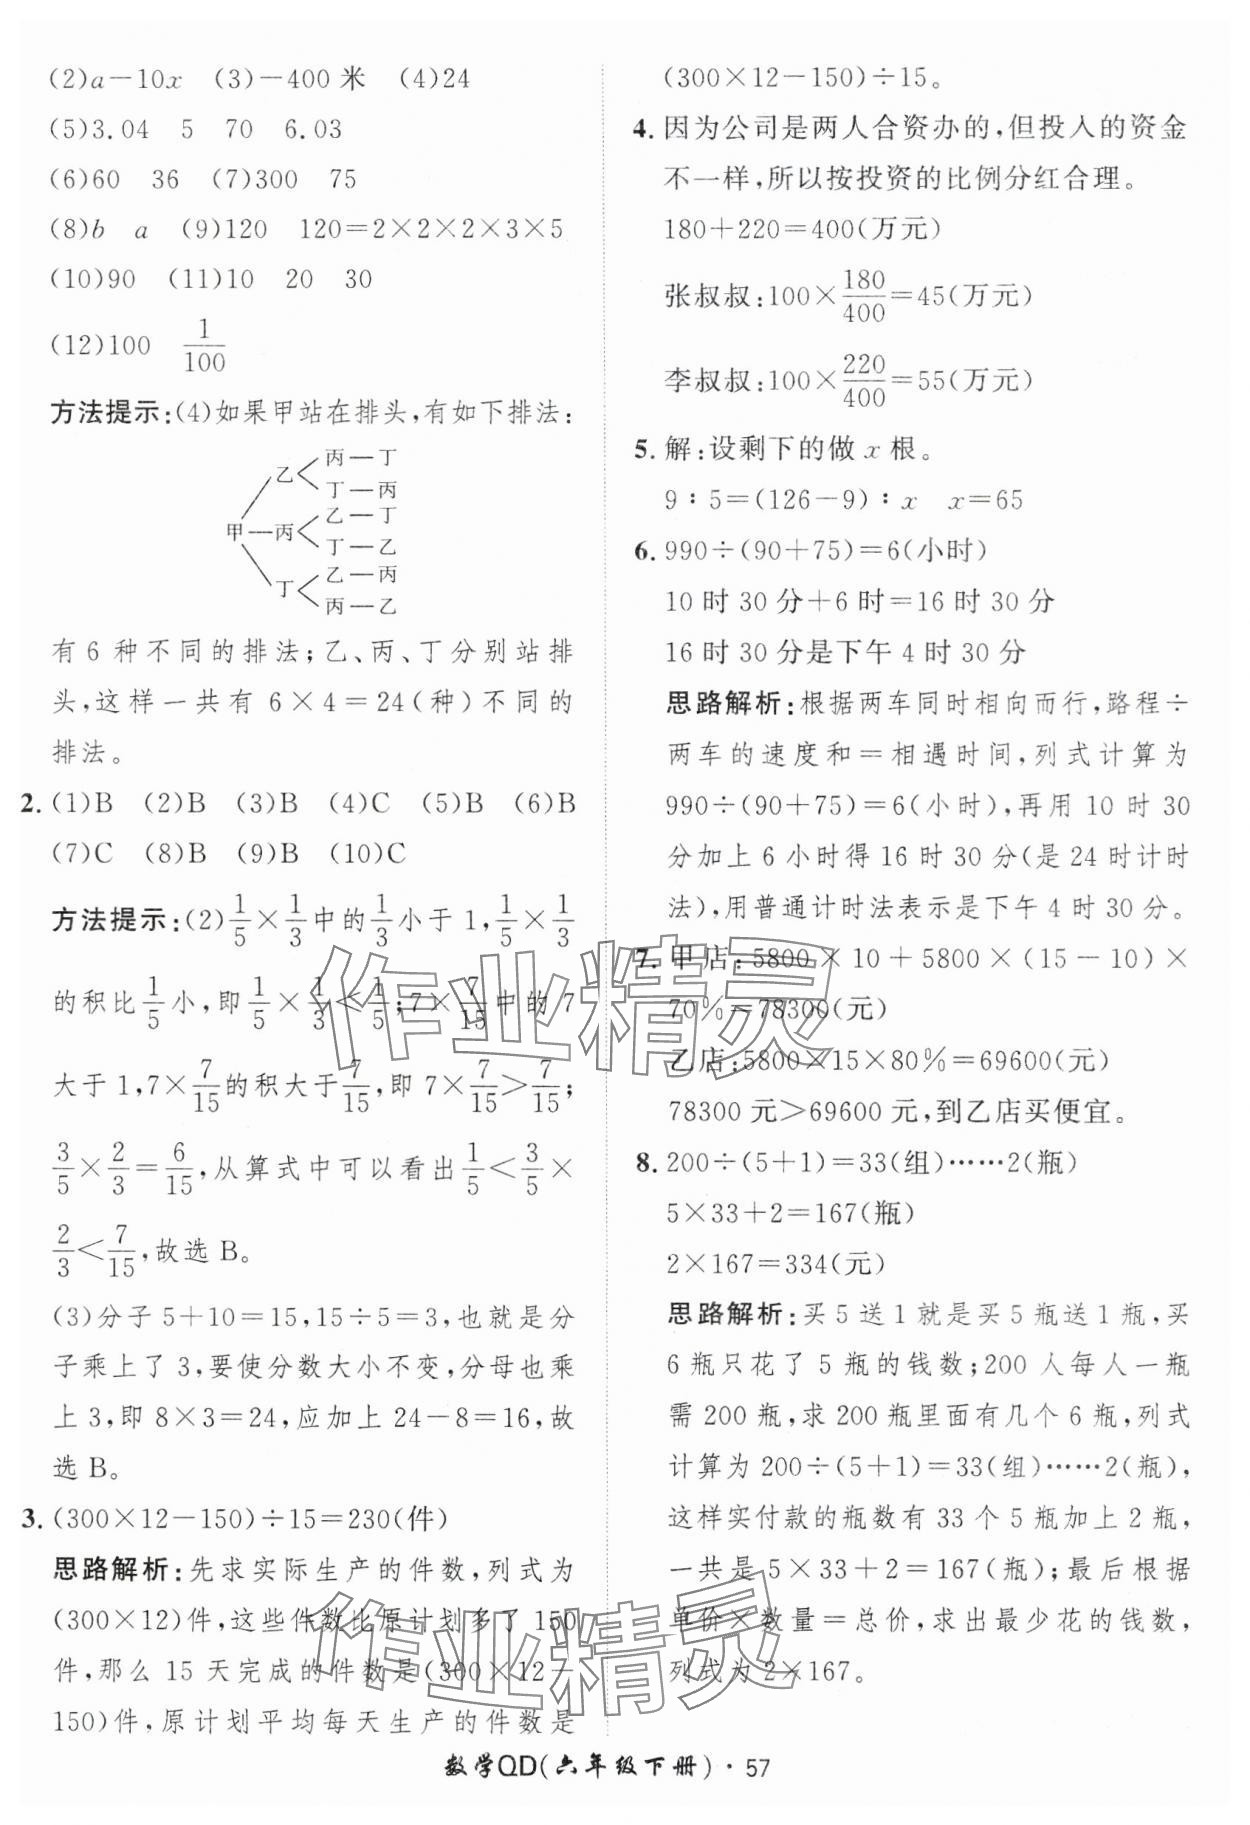 (2)a－10x　(3)－400 米　(4)24
(5)3.04　5　70　6.03
(6)60　36　(7)300　75
(8)b　a　(9)120　120＝2×2×2×3×5
(10)90　(11)10　20　30
(12)100　1/100
方法提示:(4)如果甲站在排头,有如下排法:
丙—丁
乙
丁—丙
乙—丁
甲—丙
丁—乙
乙—丙
丁
丙—乙
有 6 种不同的排法;乙、丙、丁分别站排
头,这样一共有 6×4＝24(种)不同的
排法。
2. (1)B　(2)B　(3)B　(4)C　(5)B　(6)B
(7)C　(8)B　(9)B　(10)C
方法提示:(2)1/5×1/3中的1/3小于 1,1/5×1/3
的积比1/5小,即1/5×1/3＜1/5;7×7/15中的 7
大于 1,7×7/15的积大于7/15,即 7×7/15＞7/15;
3/5×2/3＝6/15,从算式中可以看出1/5＜3/5×
2/3＜7/15,故选 B。
(3)分子 5＋10＝15,15÷5＝3,也就是分
子乘上了 3,要使分数大小不变,分母也乘
上 3,即 8×3＝24,应加上 24－8＝16,故
选 B。
3. (300×12－150)÷15＝230(件)
思路解析:先求实际生产的件数,列式为
(300×12)件,这些件数比原计划多了 150
件,那么 15 天完成的件数是(300×12－
150)件,原计划平均每天生产的件数是
(300×12－150)÷15。
4. 因为公司是两人合资办的,但投入的资金
不一样,所以按投资的比例分红合理。
180＋220＝400(万元)
张叔叔:100×180/400＝45(万元)
李叔叔:100×220/400＝55(万元)
5. 解:设剩下的做 x 根。
9∶5＝(126－9)∶x　x＝65
6. 990÷(90＋75)＝6(小时)
10 时 30 分＋6 时＝16 时 30 分
16 时 30 分是下午 4 时 30 分
思路解析:根据两车同时相向而行,路程÷
两车的速度和＝相遇时间,列式计算为
990÷(90＋75)＝6(小时),再用 10 时 30
分加上 6 小时得 16 时 30 分(是 24 时计时
法),用普通计时法表示是下午 4 时 30 分。
7. 甲店:5800×10＋5800×(15－10)×
70％＝78300(元)
乙店:5800×15×80％＝69600(元)
78300 元＞69600 元,到乙店买便宜。
8. 200÷(5＋1)＝33(组)……2(瓶)
5×33＋2＝167(瓶)
2×167＝334(元)
思路解析:买 5 送 1 就是买 5 瓶送 1 瓶,买
6 瓶只花了 5 瓶的钱数;200 人每人一瓶
需 200 瓶,求 200 瓶里面有几个 6 瓶,列式
计算为 200÷(5＋1)＝33(组)……2(瓶),
这样实付款的瓶数有 33 个 5 瓶加上 2 瓶,
一共是 5×33＋2＝167(瓶);最后根据
单价×数量＝总价,求出最少花的钱数,
列式为 2×167。
作业精灵
作业精灵
数学QD(六年级下册)·57